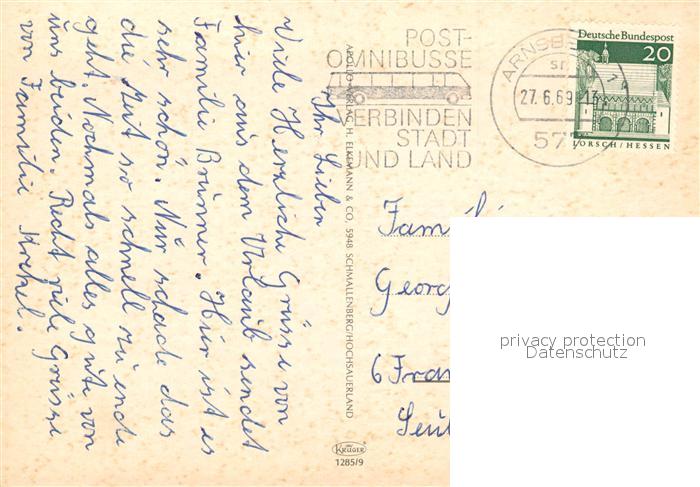 Ihr Lieben
Viele Herzliche Grüsse von
hier aus dem Urlaub sendet
Familie Brünner. Hier ist es
sehr schön. Nur schade das
die Zeit so schnell zu ende
geht. Nochmals alles gute von
uns beiden. Recht viele Grüsse
von Familie
APOLLO-VERLAG H. ELKEMANN & CO, 5948 SCHMALLENBERG/HOCHSAUERLAND
KRÜGER
1285/9
POST-
OMNIBUSSE
VERBINDEN
STADT
UND LAND
ARNSBE
27.6.69-13
577
Deutsche Bundespost
20
LORSCH/HESSEN
Fam
Georg
6 Fran
privacy protection
Datenschutz